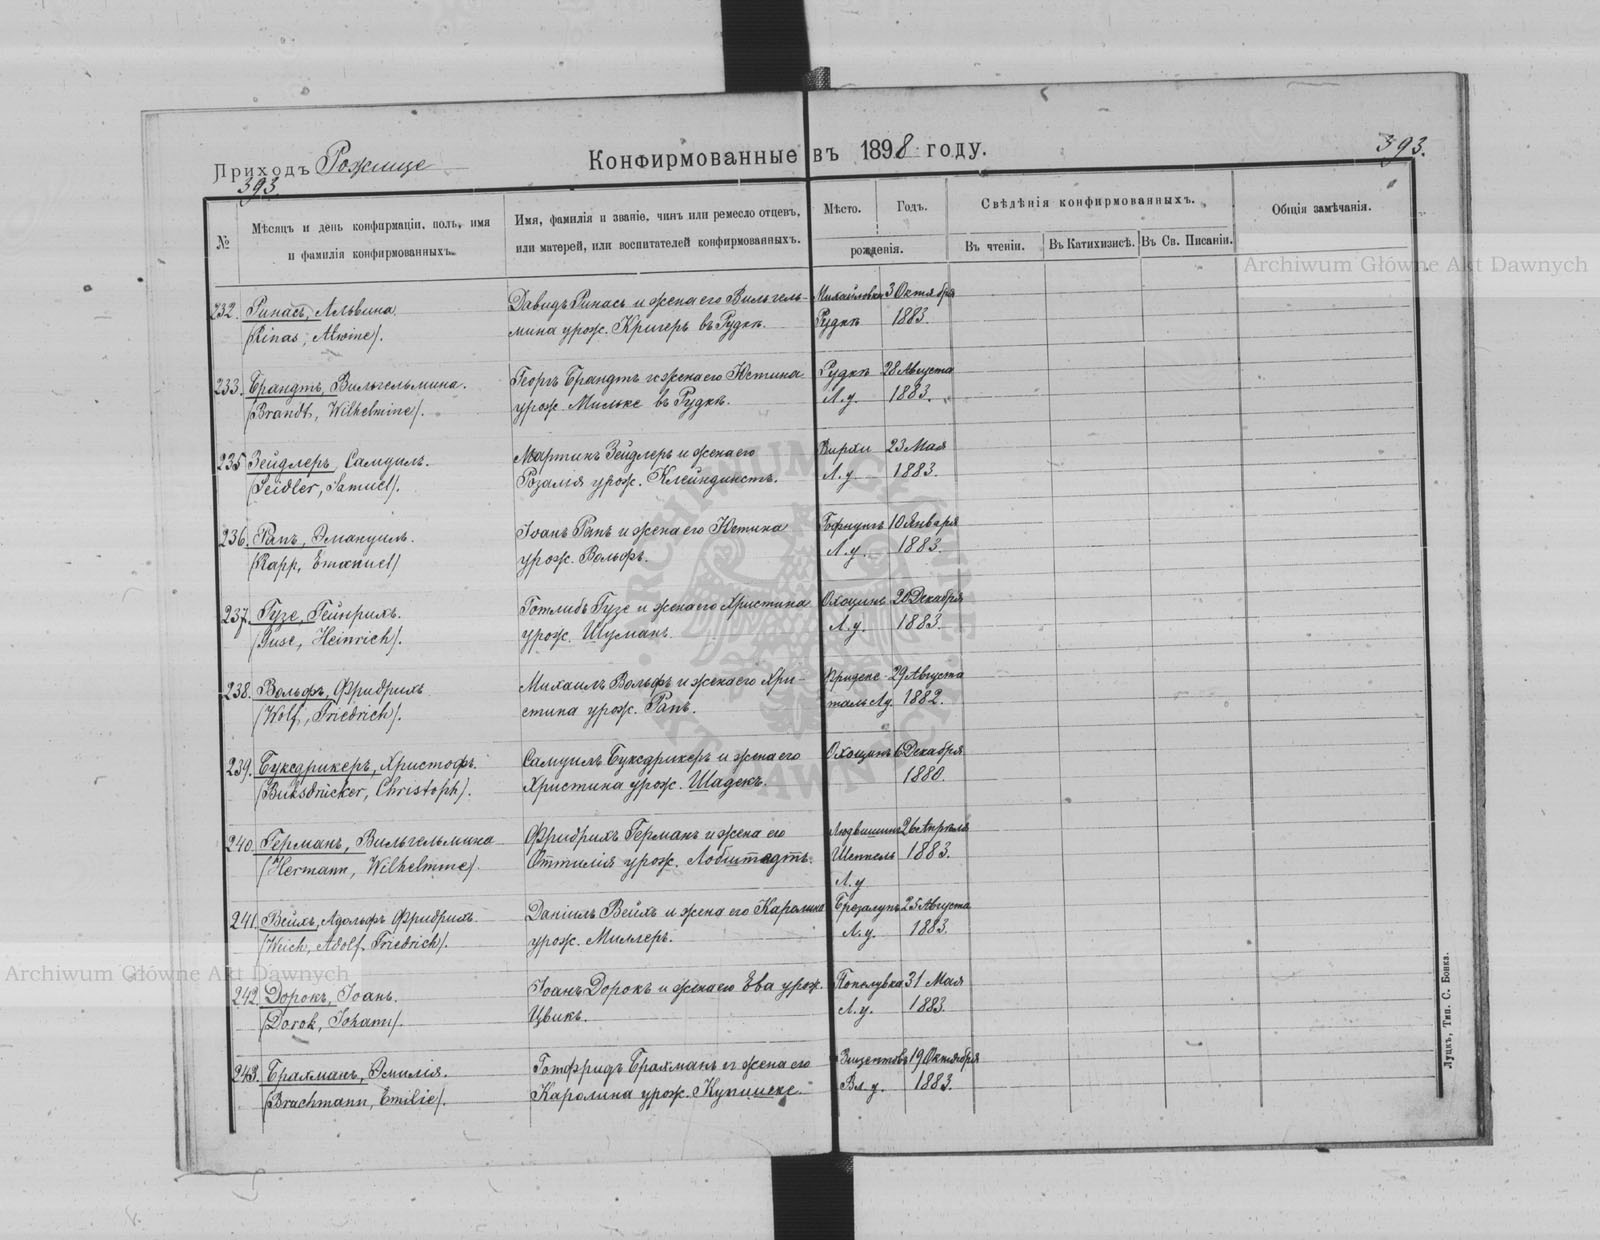 Приходъ Рожище
Конфирмованные въ 1898 году.
393.
393
№
Мѣсяцъ и день конфирмаціи, полъ, имя
и фамилія конфирмованныхъ.
Имя, фамилія и званіе, чинъ или ремесло отцевъ,
или матерей, или воспитателей конфирмованныхъ.
Мѣсто.
Годъ.
рожденія.
Свѣдѣнія конфирмованныхъ.
Въ чтеніи.
Въ Катихизисѣ.
Въ Св. Писаніи.
Общія замѣчанія.
232. Ринасъ, Альвина
(Rinas, Alwine).
Давидъ Ринасъ и жена его Вильгель-
мина урож. Кригеръ въ Рудкѣ.
Михайловка
Рудкѣ
3 Октября
1883.
233. Брандтъ, Вильгельмина.
(Brandt, Wilhelmine).
Георгъ Брандтъ и жена его Юстина
урож. Мильке въ Рудкѣ.
Рудкѣ
Л.у.
28 Августа
1883.
235 Зейдлеръ, Самуилъ.
(Seidler, Samuel).
Мартинъ Зейдлеръ и жена его
Розалія урож. Клейндинстъ.
Вирхи
Л.у.
23 Мая
1883.
236. Рапъ, Эмануилъ.
(Rapp, Emanuel)
Іоанъ Рапъ и жена его Юстина
урож. Вольфъ.
Гофнунгъ
Л.у.
10 Января
1883.
237. Гузе, Гейнрихъ.
(Guse, Heinrich).
Готлибъ Гузе и жена его Христина
урож. Шуманъ.
Охоцинъ
Л.у.
20 Декабря
1883.
238. Вольфъ, Фридрихъ
(Wolf, Friedrich).
Михаилъ Вольфъ и жена его Хри-
стина урож. Рапъ.
Фриденс-
таль Лу.
29 Августа
1882.
239. Буксдрикеръ, Христофъ.
(Buksdrücker, Christoph).
Самуилъ Буксдрикеръ и жена его
Христина урож. Шадекъ.
Охоцинъ
6 Декабря
1880.
240. Германъ, Вильгельмина
(Hermann, Wilhelmine).
Фридрихъ Германъ и жена его
Оттилія урож. Лобштадтъ.
Шеппель
Л.у
26 Апрѣля
1883.
241. Вейхъ, Адольфъ Фридрихъ.
(Weich, Adolf Friedrich).
Даніилъ Вейхъ и жена его Каролина
урож. Миллеръ.
Л.у.
25 Августа
1883.
242. Дорокъ, Іоанъ.
(Dorok, Johann).
Іоанъ Дорокъ и жена его Ева урож.
Цвикъ.
Попелувка
Л.у.
31 Мая
1883.
243. Брахманъ, Эмилія.
(Brachmann, Emilie).
Готфридъ Брахманъ и жена его
Каролина урож. Купшеке.
Вл.у.
19 Октября
1883.
Луцкъ, Тип. С. Бокка.
Archiwum Główne Akt Dawnych
Archiwum Główne Akt Dawnych
ARCHIWUM GŁÓWNE AKT DAWNYCH